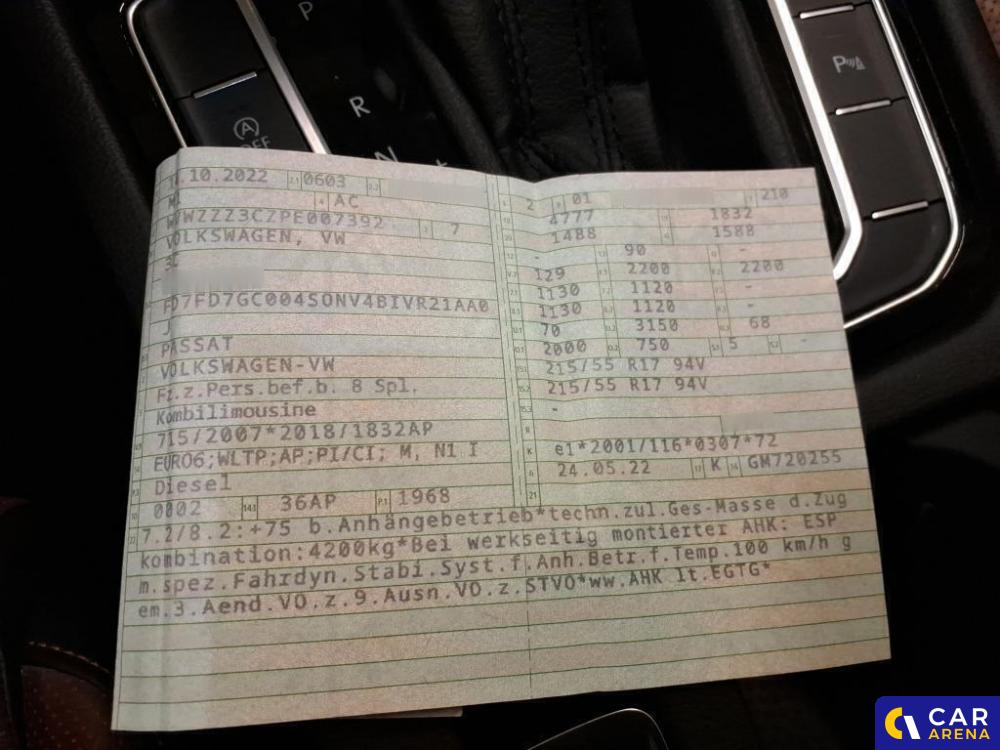 P
R
N
OFF
P
.10.2022 2.1 0603 2.2
M1 4 AC
WVWZZZ3CZPE007392 3 7
VOLKSWAGEN, VW
3C
FD7FD7GC004SONV4BIVR21AA0
J
PASSAT
VOLKSWAGEN-VW
Fz.z.Pers.bef.b. 8 Spl.
Kombilimousine
715/2007*2018/1832AP
EURO6;WLTP;AP;PI/CI; M, N1 I
Diesel
0002 14.1 36AP P.1 1968
2 9 01 210
4777 1832
1488 1588
- 90 -
129 2200 2200
1130 1120 -
1130 1120 -
70 3150 68
2000 750 5 -
215/55 R17 94V
215/55 R17 94V
-
K e1*2001/116*0307*72
6 24.05.22 17 K 16 GM720255
21
22 7.2/8.2:+75 b.Anhängebetrieb*techn.zul.Ges-Masse d.Zug
kombination:4200kg*Bei werkseitig montierter AHK: ESP
m.spez.Fahrdyn.Stabi.Syst.f.Anh.Betr.f.Temp.100 km/h g
em.3.Aend.VO.z.9.Ausn.VO.z.STVO*ww.AHK lt.EGTG*
CAR
ARENA